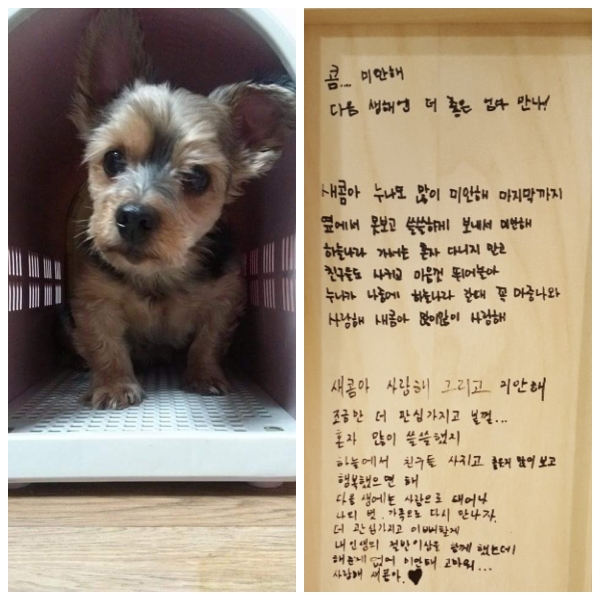 콤... 미안해
다음 생해엔 더 좋은 엄마 만나!
새콤아 누나도 많이 미안해 마지막까지
옆에서 못보고 쓸쓸하게 보내서 미안해
하늘나라 가서는 혼자 다니지 말고
친구들도 사귀고 마음껏 뛰어놀아
누나가 나중에 하늘나라 갈때 꼭 마중나와
사랑해 새콤아 많이많이 사랑해
새콤아 사랑해 그리고 미안해
조금만 더 관심가지고 볼껄...
혼자 많이 쓸쓸했지
하늘에서 친구들 사귀고 좋은거 많이 보고
행복했으면 해
다음 생에는 사람으로 태어나
나의 벗, 가족으로 다시 만나자.
더 관심가지고 이뻐할게
내 인생의 절반이상을 함께 했는데
해준게 없어 미안해 고마워...
사랑해 새콤아.